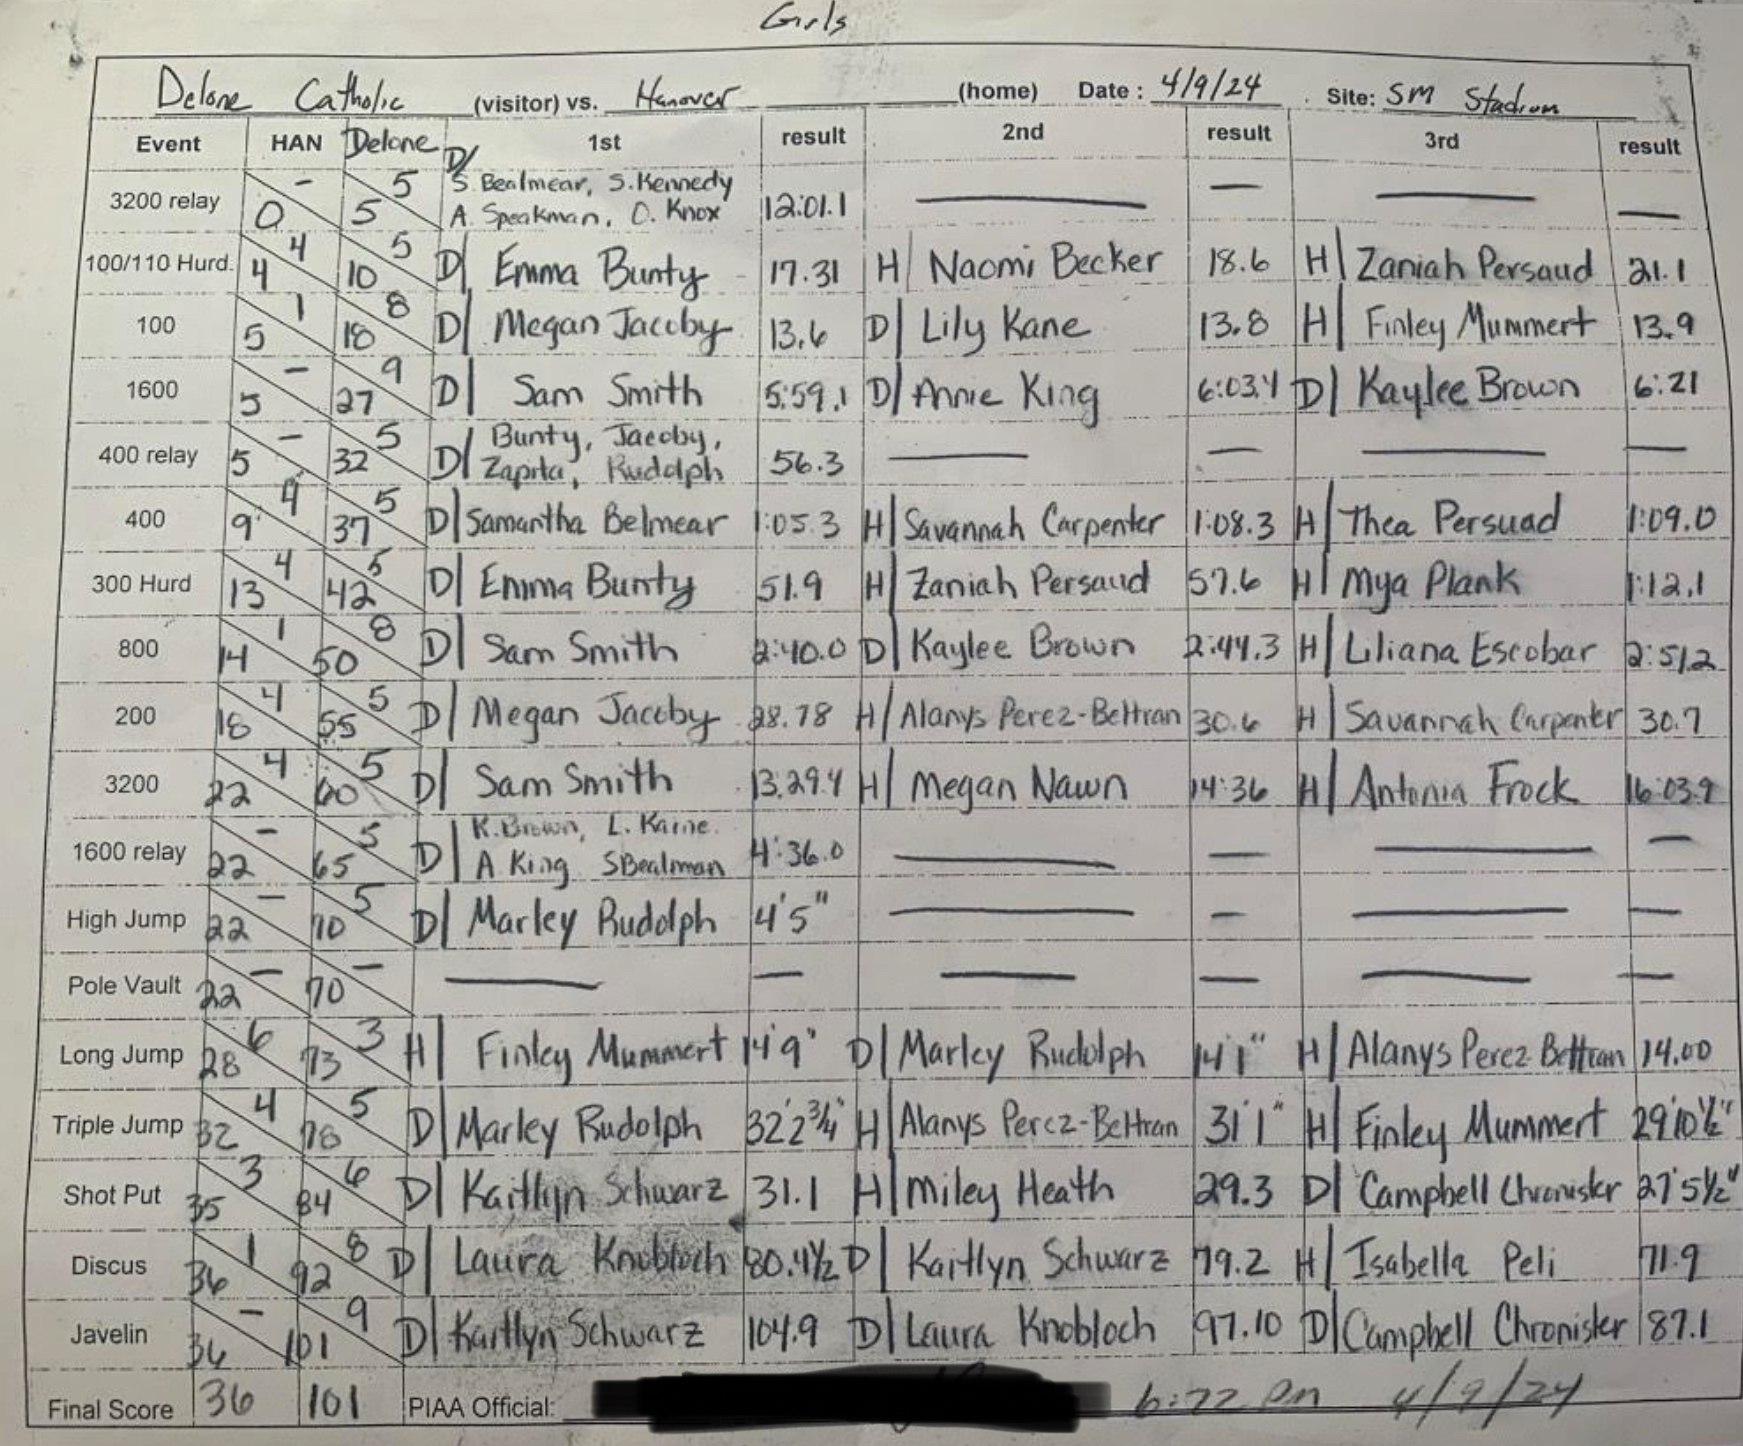 Girls
Delone Catholic (visitor) vs. Hanover (home) Date : 4/9/24 Site: SM Stadium
Event HAN Delone 1st result 2nd result 3rd result
3200 relay - 0 5 5 D/ S. Bealmear, S. Kennedy A. Speakman, O. Knox 12:01.1 — — — —
100/110 Hurd. 4 4 5 10 D| Emma Bunty 17.31 H| Naomi Becker 18.6 H| Zaniah Persaud 21.1
100 1 5 8 18 D| Megan Jacoby 13.6 D| Lily Kane 13.8 H| Finley Mummert 13.9
1600 - 5 9 27 D| Sam Smith 5:59.1 D| Annie King 6:03.4 D| Kaylee Brown 6:21
400 relay - 5 5 32 D| Bunty, Jacoby, Zapata, Rudolph 56.3 — — — —
400 4 9 5 37 D| Samantha Belmear 1:05.3 H| Savannah Carpenter 1:08.3 H| Thea Persuad 1:09.0
300 Hurd 4 13 5 42 D| Emma Bunty 51.9 H| Zaniah Persaud 57.6 H| Mya Plank 1:12.1
800 1 14 8 50 D| Sam Smith 2:40.0 D| Kaylee Brown 2:44.3 H| Liliana Escobar 2:51.2
200 4 18 5 55 D| Megan Jacoby 28.78 H| Alanys Perez-Beltran 30.6 H| Savannah Carpenter 30.7
3200 4 22 5 60 D| Sam Smith 13:29.4 H| Megan Nawn 14:36 H| Antonia Frock 16:03.9
1600 relay - 22 5 65 D| K. Brown, L. Kane. A King, S Bealman 4:36.0 — — — —
High Jump - 22 5 70 D| Marley Rudolph 4'5" — — — —
Pole Vault - 22 - 70 — — — — — —
Long Jump 6 28 3 73 H| Finley Mummert 14'9" D| Marley Rudolph 14'1" H| Alanys Perez-Beltran 14.00
Triple Jump 4 32 5 78 D| Marley Rudolph 32'2¾" H| Alanys Perez-Beltran 31'1" H| Finley Mummert 29'10½"
Shot Put 3 35 6 84 D| Kaitlyn Schwarz 31.1 H| Miley Heath 29.3 D| Campbell Chronister 27'5½"
Discus 1 36 8 92 D| Laura Knobloch 80.4½ D| Kaitlyn Schwarz 79.2 H| Isabella Peli 71.9
Javelin - 36 9 101 D| Kaitlyn Schwarz 104.9 D| Laura Knobloch 97.10 D| Campbell Chronister 87.1
Final Score 36 101 PIAA Official: 6:22 pm 4/9/24